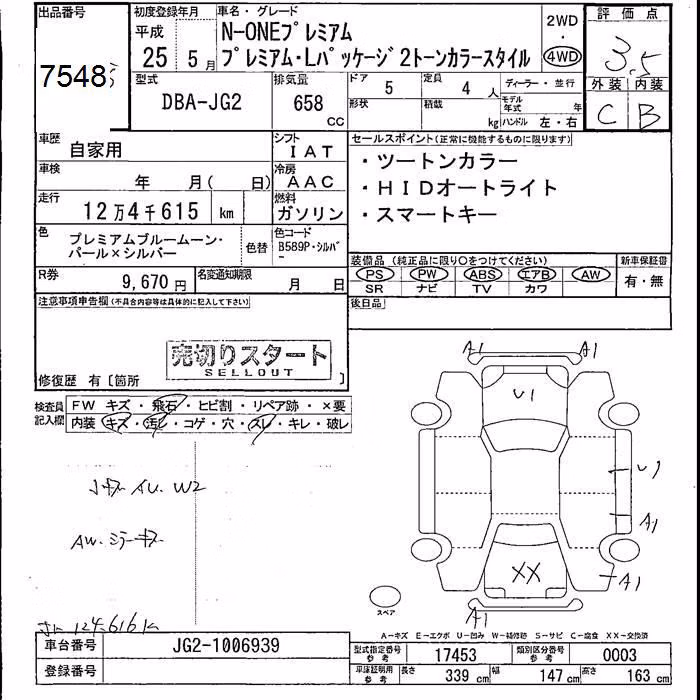 出品番号
7548
初度登録年月
平成
25年 5月
車名・グレード
N-ONEプレミアム
プレミアム・Lパッケージ 2トーンカラースタイル
2WD
・
4WD
評価点
3.5
外装 内装
C B
型式
DBA-JG2
排気量
658
CC
ドア 5
形状
定員 4 人
積載 kg
ディーラー・並行
モデル年式 年
ハンドル 左・右
車歴
自家用
シフト
IAT
車検
年 月( 日)
冷房
AAC
走行
12万4千615 km
燃料
ガソリン
色
プレミアムブルームーン・
パール×シルバー
色替
色コード
B589P・シルバ
ー
R券
9,670 円
名変通知期限
月 日
セールスポイント(正常に機能するものに限ります)
・ツートンカラー
・HIDオートライト
・スマートキー
装備品 (純正品に限り○をつけてください)
PS PW ABS エアB AW
SR ナビ TV カワ
新車保証書
有・無
後日品
注意事項申告欄(不具合内容等は具体的に記入して下さい)
売切りスタート
SELLOUT
修復歴 有〔箇所 〕
検査員
記入欄
FW キズ・飛石・ヒビ割・リペア跡・×要
内装 キズ・汚レ・コゲ・穴・スレ・キレ・破レ
A1 A1
U1
U1
A1
XX
A1
A1
AU. W2
AW. ミラーキズ
124616k
スペア
A-キズ E-エクボ U-凹み W-補修跡 S-サビ C-腐食 XX-交換済
車台番号
JG2-1006939
登録番号
型式指定番号
参考
17453
類別区分番号
参考
0003
車庫証明用
参考
長さ 339 cm 幅 147 cm 高さ 163 cm